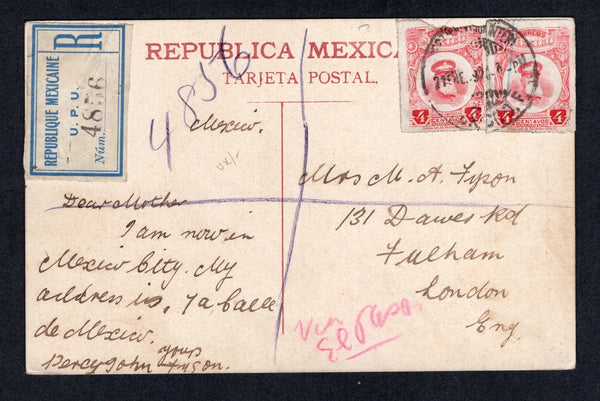 REPUBLICA MEXICANA
TARJETA POSTAL.
REPUBLIQUE MEXICAINE
R
U. P. U.
Núm. 4856
4856
CORREOS
4 4
CENTAVOS CENTAVOS
Mexico.
Dear Mother
I am now in
Mexico City. My
address is, 7a Calle
de Mexico.
yours
Percy John Tyson.
Mrs M. A. Tyson
131 Dawes Rd
Fulham
London
Eng.
Via
El Paso.